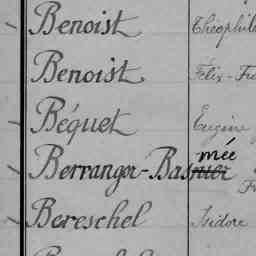 Benoist Théophile
Benoist Félix-
Béquet Eugène
mée
Berranger-Basmer
Bereschel Isidore